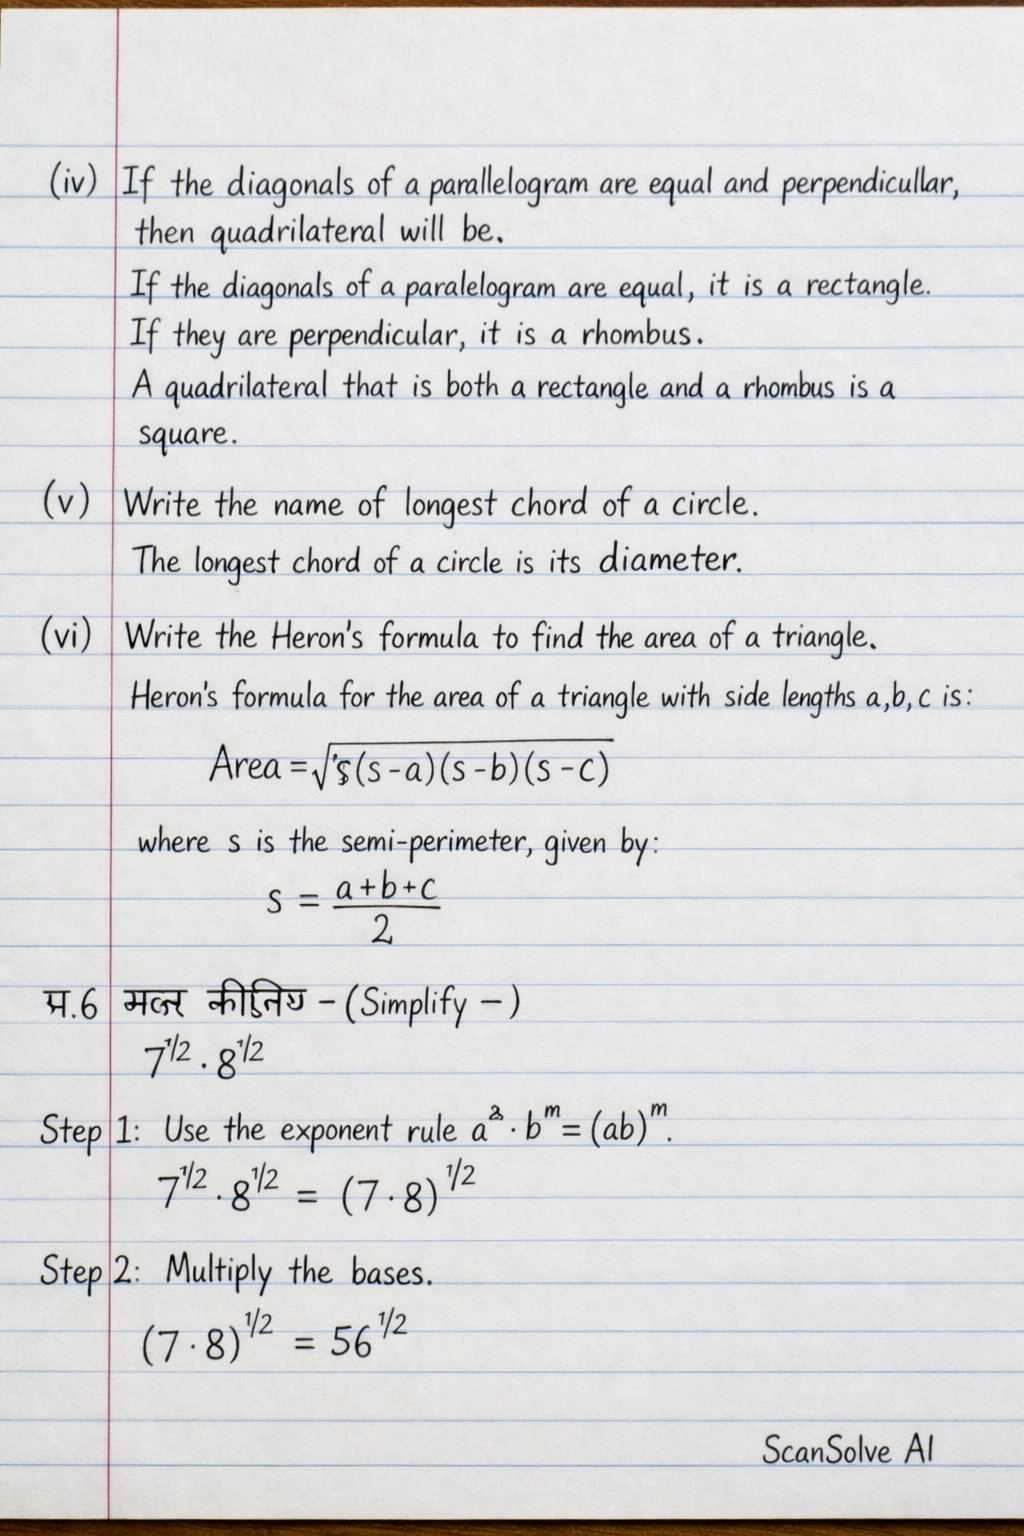 (iv) If the diagonals of a parallelogram are equal and perpendicullar,
then quadrilateral will be.
If the diagonals of a paralelogram are equal, it is a rectangle.
If they are perpendicular, it is a rhombus.
A quadrilateral that is both a rectangle and a rhombus is a
square.
(v) Write the name of longest chord of a circle.
The longest chord of a circle is its diameter.
(vi) Write the Heron's formula to find the area of a triangle.
Heron's formula for the area of a triangle with side lengths a,b,c is:
Area = √s(s-a)(s-b)(s-c)
where s is the semi-perimeter, given by:
s = a+b+c / 2
.6 – (Simplify –)
7^1/2 · 8^1/2
Step 1: Use the exponent rule a · b^m = (ab)^m.
7^1/2 · 8^1/2 = (7 · 8)^1/2
Step 2: Multiply the bases.
(7 · 8)^1/2 = 56^1/2
ScanSolve AI